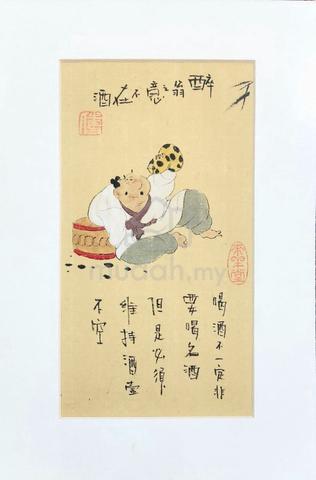 醉翁之意不在酒
喝酒不一定非
要喝名酒
但是必须
维持酒壶
不空
mudah.my